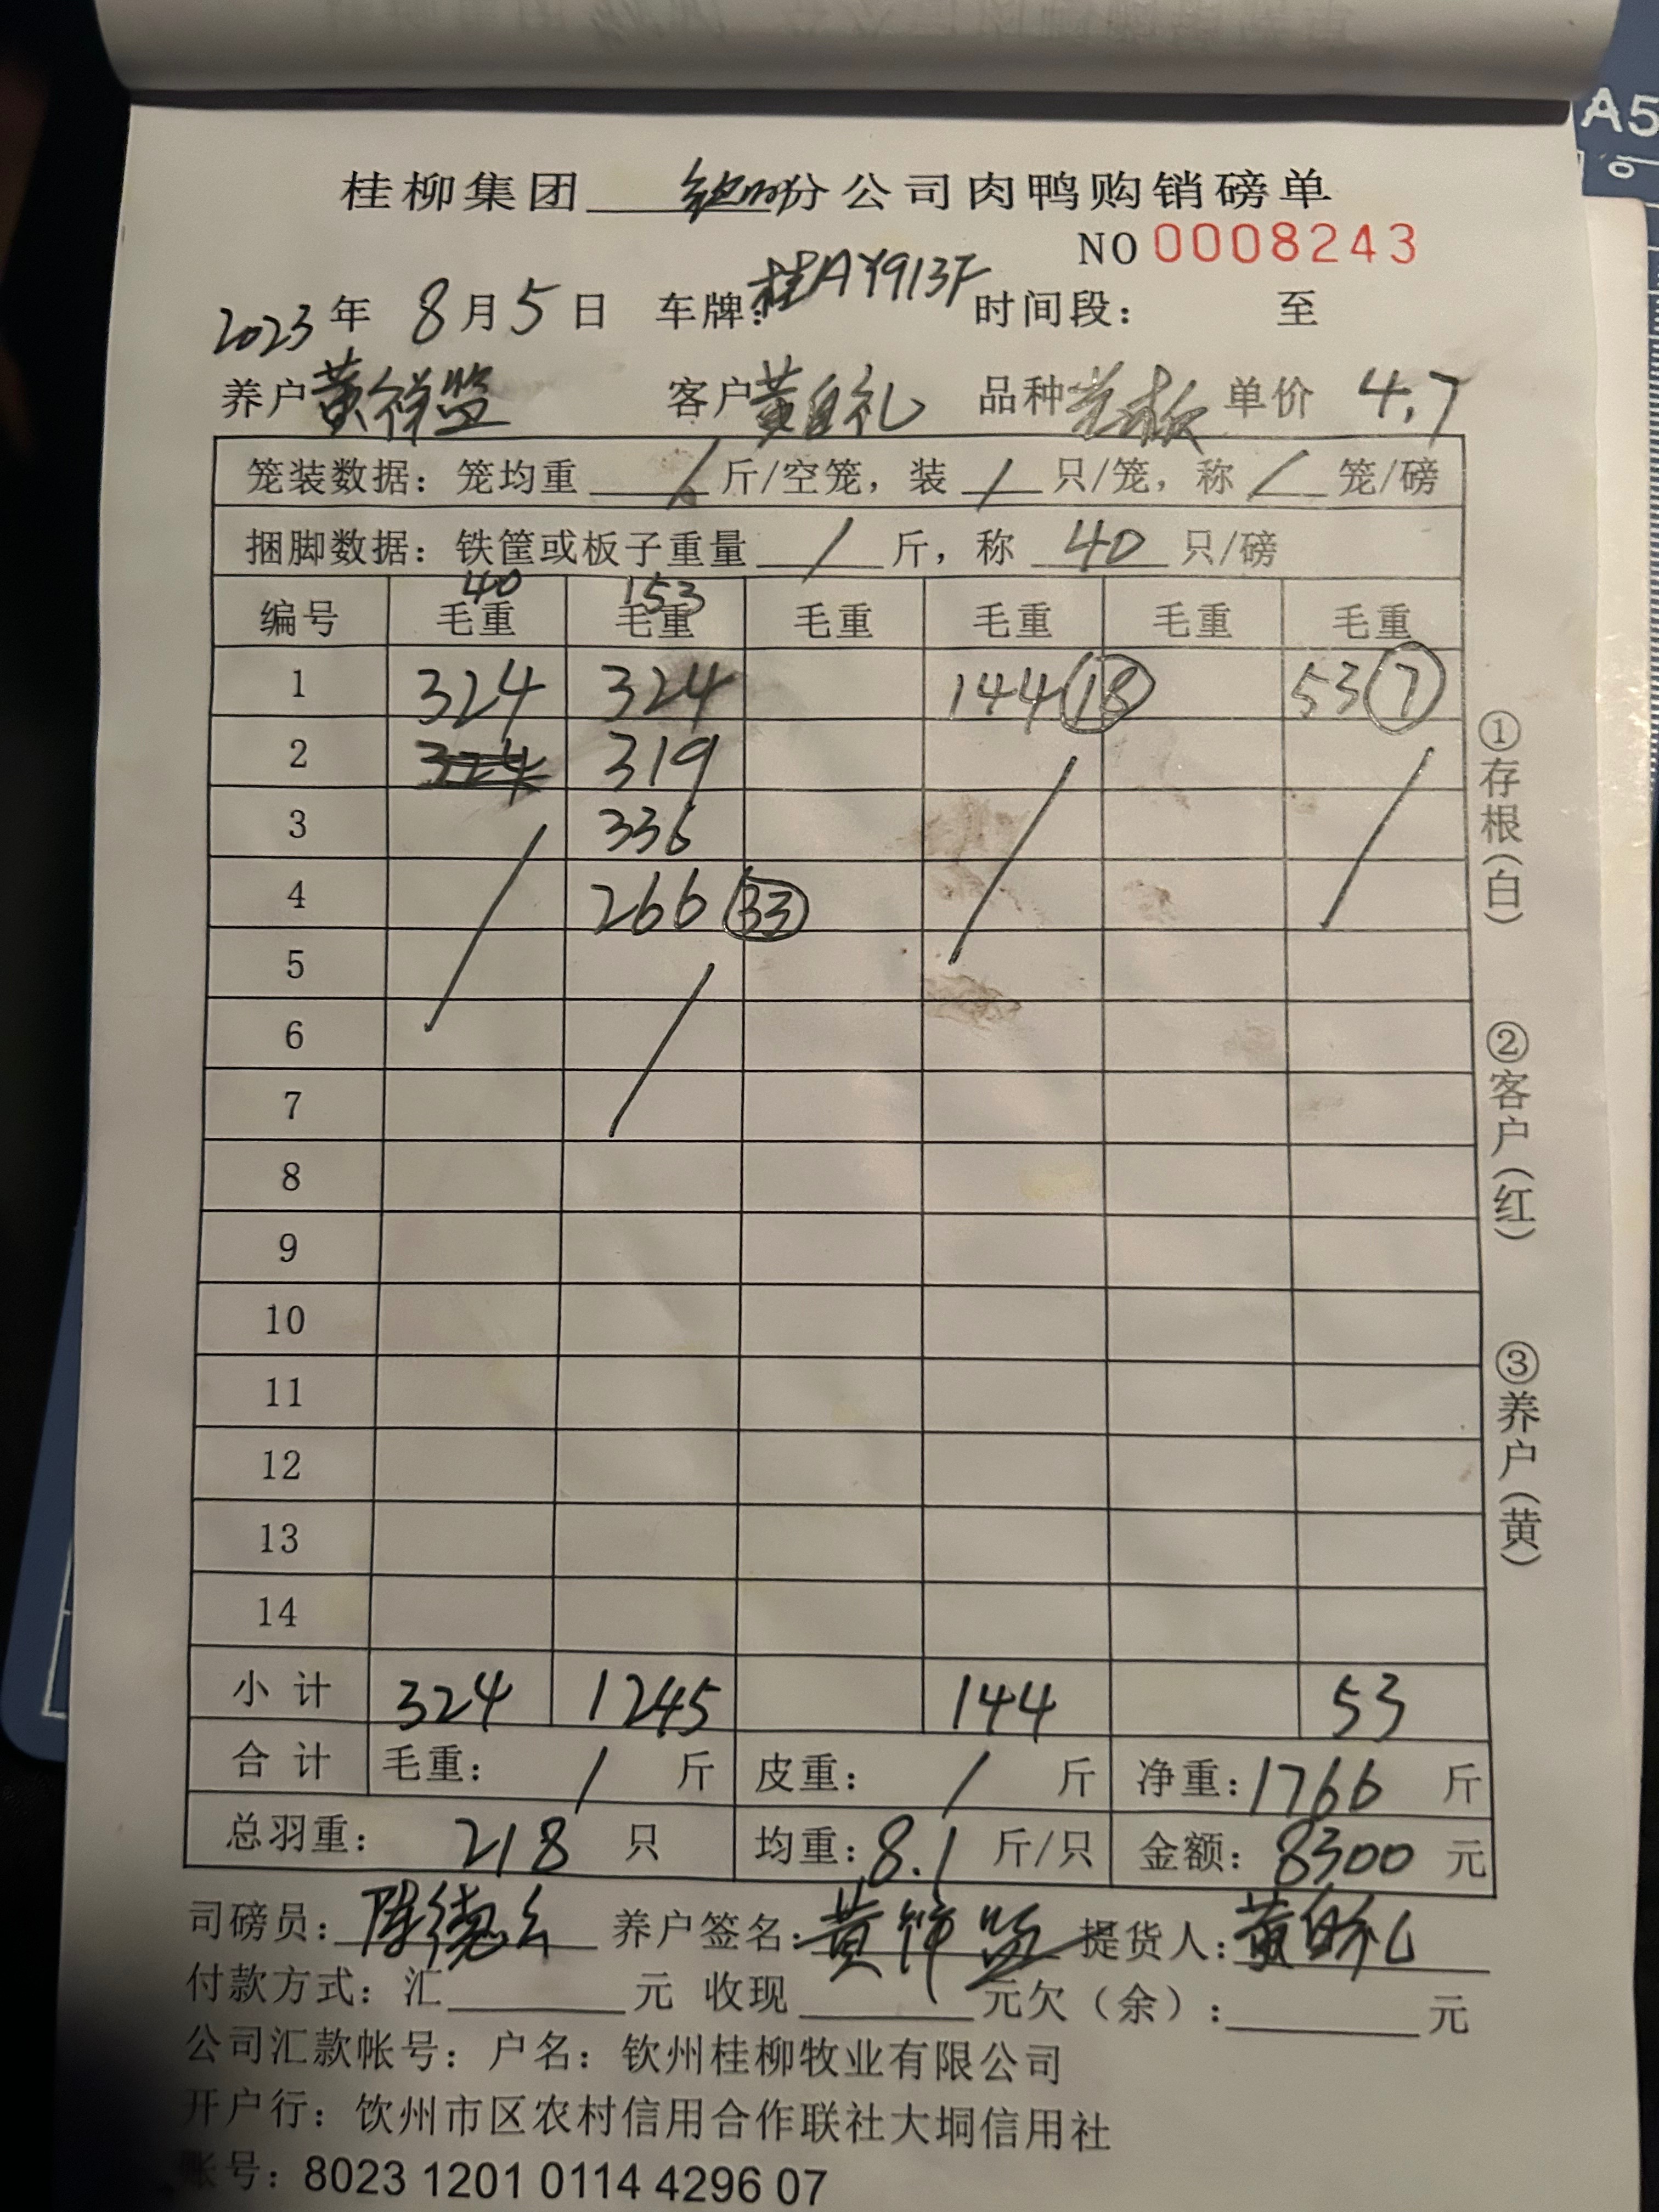 桂柳集团 分公司肉鸭购销磅单
NO 0008243
2023年 8月5日 车牌:桂AY913F 时间段: 至
养户黄祥监 客户黄自礼 品种 单价 4.7
笼装数据:笼均重 / 斤/空笼,装 / 只/笼,称 / 笼/磅
捆脚数据:铁筐或板子重量 / 斤,称 40 只/磅
40 153
编号 毛重 毛重 毛重 毛重 毛重 毛重
1 324 324 144 ⑱ 53 ⑦
2 324 319
3 336
4 266 ㉝
5
6
7
8
9
10
11
12
13
14
小计 324 1245 144 53
合计 毛重: / 斤 皮重: / 斤 净重:1766 斤
总羽重: 218 只 均重:8.1 斤/只 金额:8300 元
司磅员: 养户签名:黄祥监 提货人:黄自礼
付款方式:汇 元 收现 元欠(余): 元
公司汇款帐号:户名:钦州桂柳牧业有限公司
开户行:钦州市区农村信用合作联社大垌信用社
帐号:8023 1201 0114 4296 07
①存根(白)
②客户(红)
③养户(黄)
A5